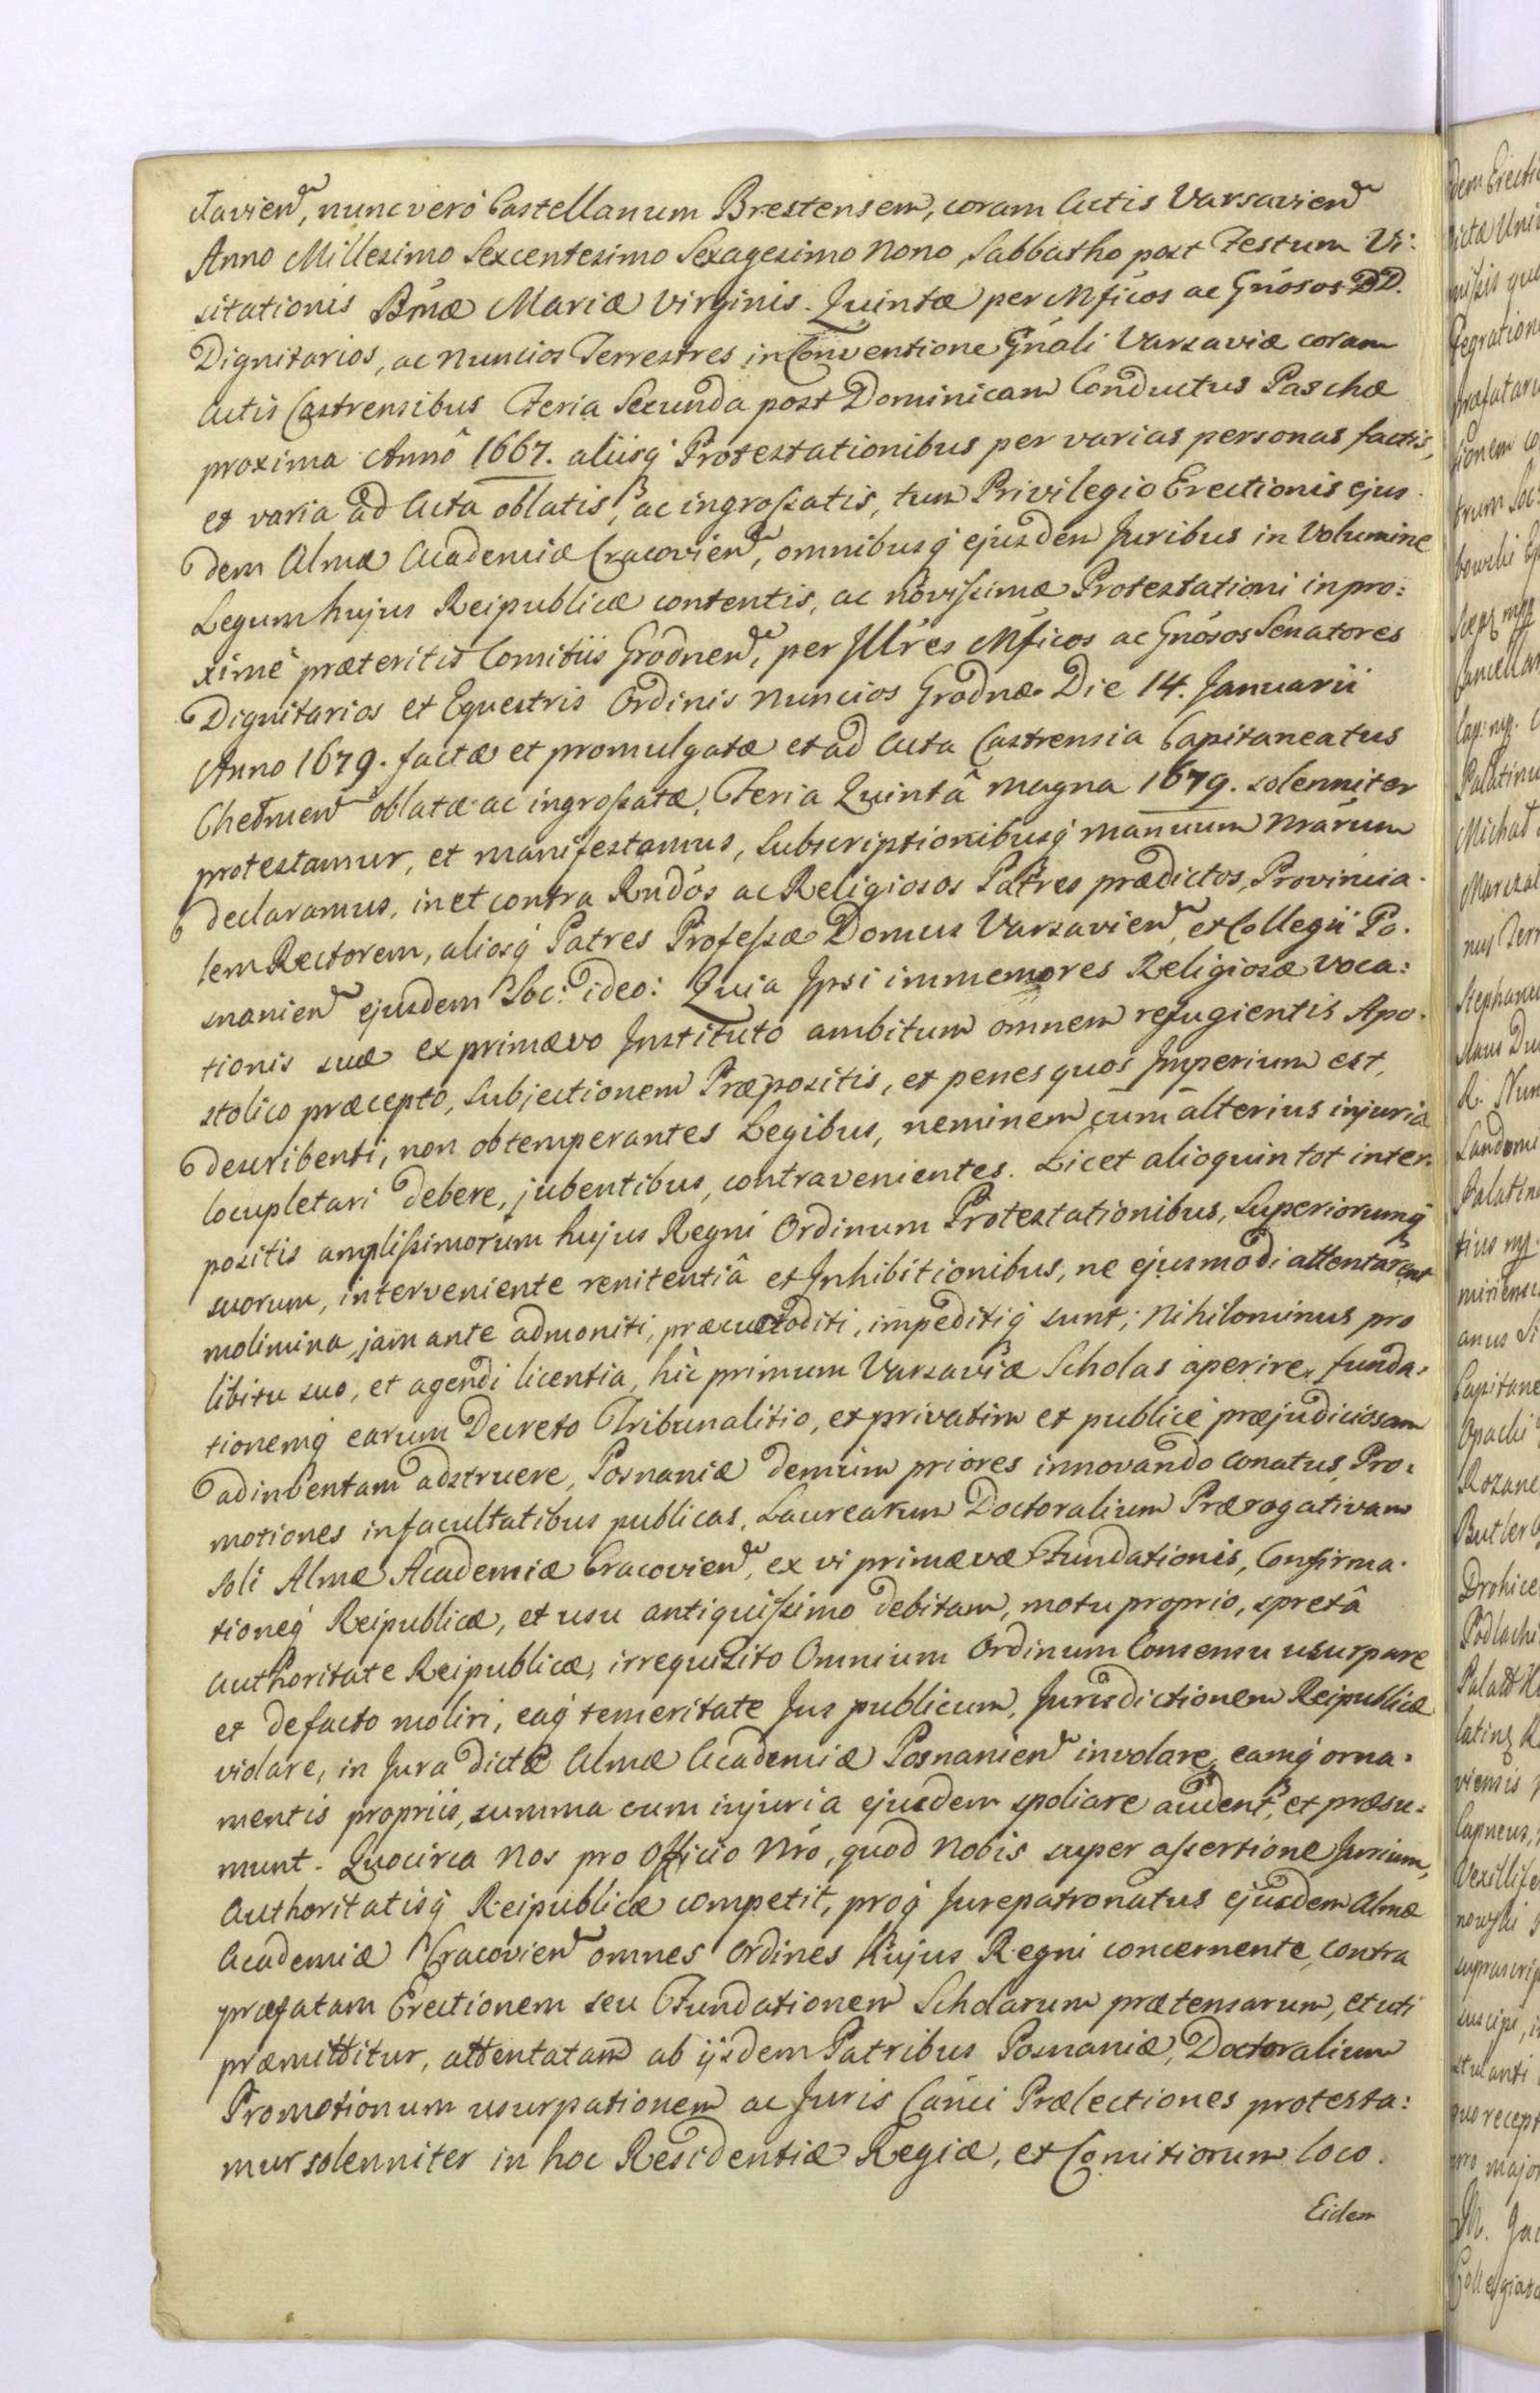 ctavien, nunc vero Castellanum Brestensem, coram Actis Varsavien
Anno Millesimo Sexcentesimo Sexagesimo Nono, Sabbatho post Festum Vi:
sitationis Bmæ Mariæ Virginis. Quintæ per Mficos ac Gnosos DD.
Dignitarios, ac Nuncios Terrestres in Conventione Gnali Varsaviæ coram
Actis Castrensibus Feria Secunda post Dominicam Conductus Paschæ
proxima Annô 1667. aliisq Protestationibus per varias personas factis,
et varia ad Acta oblatis, ac ingrossatis, tum Privilegio Erectionis ejus
dem Almæ Academiæ Cracovien, omnibusq ejusdem Juribus in Volumine
Legum hujus Reipublicæ contentis, ac novissimæ Protestationi in pro:
xime præteritis Comitiis Grodnen, per Illres Mficos ac Gnosos Senatores
Dignitarios et Equestris Ordinis Nuncios Grodnæ Die 14. Januarii
Anno 1679. factæ et promulgatæ et ad Acta Castrensia Capitaneatus
Chełmen oblatæ ac ingrossatæ, Feria Quintâ magna 1679. solenniter
protestamur, et manifestamus, Subscriptionibusq manuum Nrarum
declaramus, in et contra Rndos ac Religiosos Patres prædictos, Provincia.
lem Rectorem, aliosq Patres Professæ Domus Varsavien, et Collegii Po.
snanien ejusdem Soc: ideo: Quia Ipsi immemores Religiosæ voca:
tionis suæ ex primævo Instituto ambitum omnem refugientis Apo.
stolico præcepto, Subjectionem Præpositis, et penes quos Imperium est,
describenti, non obtemperantes Legibus, neminem cum alterius injuria
locupletari debere, jubentibus, contravenientes. Licet alioquin tot inter.
positis amplissimorum hujus Regni Ordinum Protestationibus, Superiorumq
suorum, interveniente renitentiâ et Inhibitionibus, ne ejusmodi attentarent
molimina, jam ante admoniti, præcustoditi, impeditiq sunt; Nihilominus pro
libitu suo, et agendi licentia, hic primum Varsaviæ Scholas aperire, funda:
tionemq earum Decreto Tribunalitio, et privatim et publice præjudiciosam
adinventam adstruere, Posnaniæ demum priores innovando conatus, Pro:
motiones in facultatibus publicas, Laurearum Doctoralium Prærogativam
soli Almæ Academiæ Cracovien, ex vi primævæ Fundationis, Confirma.
tioneq Reipublicæ, et usu antiquissimo debitam, motu proprio, spretâ
Authoritate Reipublicæ, irrequisito Omnium Ordinum Consensu usurpare
et de facto moliri, eaq temeritate Jus publicum, Jurisdictionem Reipublicæ
violare, in Jura dictæ Almæ Academiæ Posnanien involare, eamq orna:
mentis propriis, summa cum injuria ejusdem spoliare audent, et præsu:
munt. Quocirca Nos pro Officio Nro, quod Nobis super assertione Jurium,
Authoritatisq Reipublicæ competit, proq Jurepatronatus ejusdem Almæ
Academiæ Cracovien omnes Ordines hujus Regni concernente, contra
præfatam Erectionem seu Fundationem Scholarum prætensarum, et uti
præmittitur, attentatam ab iisdem Patribus Posnaniæ, Doctoralium
Promotionum usurpationem ac Juris Canci Prælectiones protesta:
mur solenniter in hoc Residentiæ Regiæ, et Comitiorum loco.
Eidem